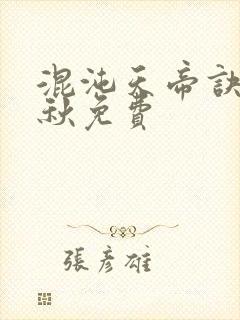 混沌天帝訣
秋免費
張彥雄